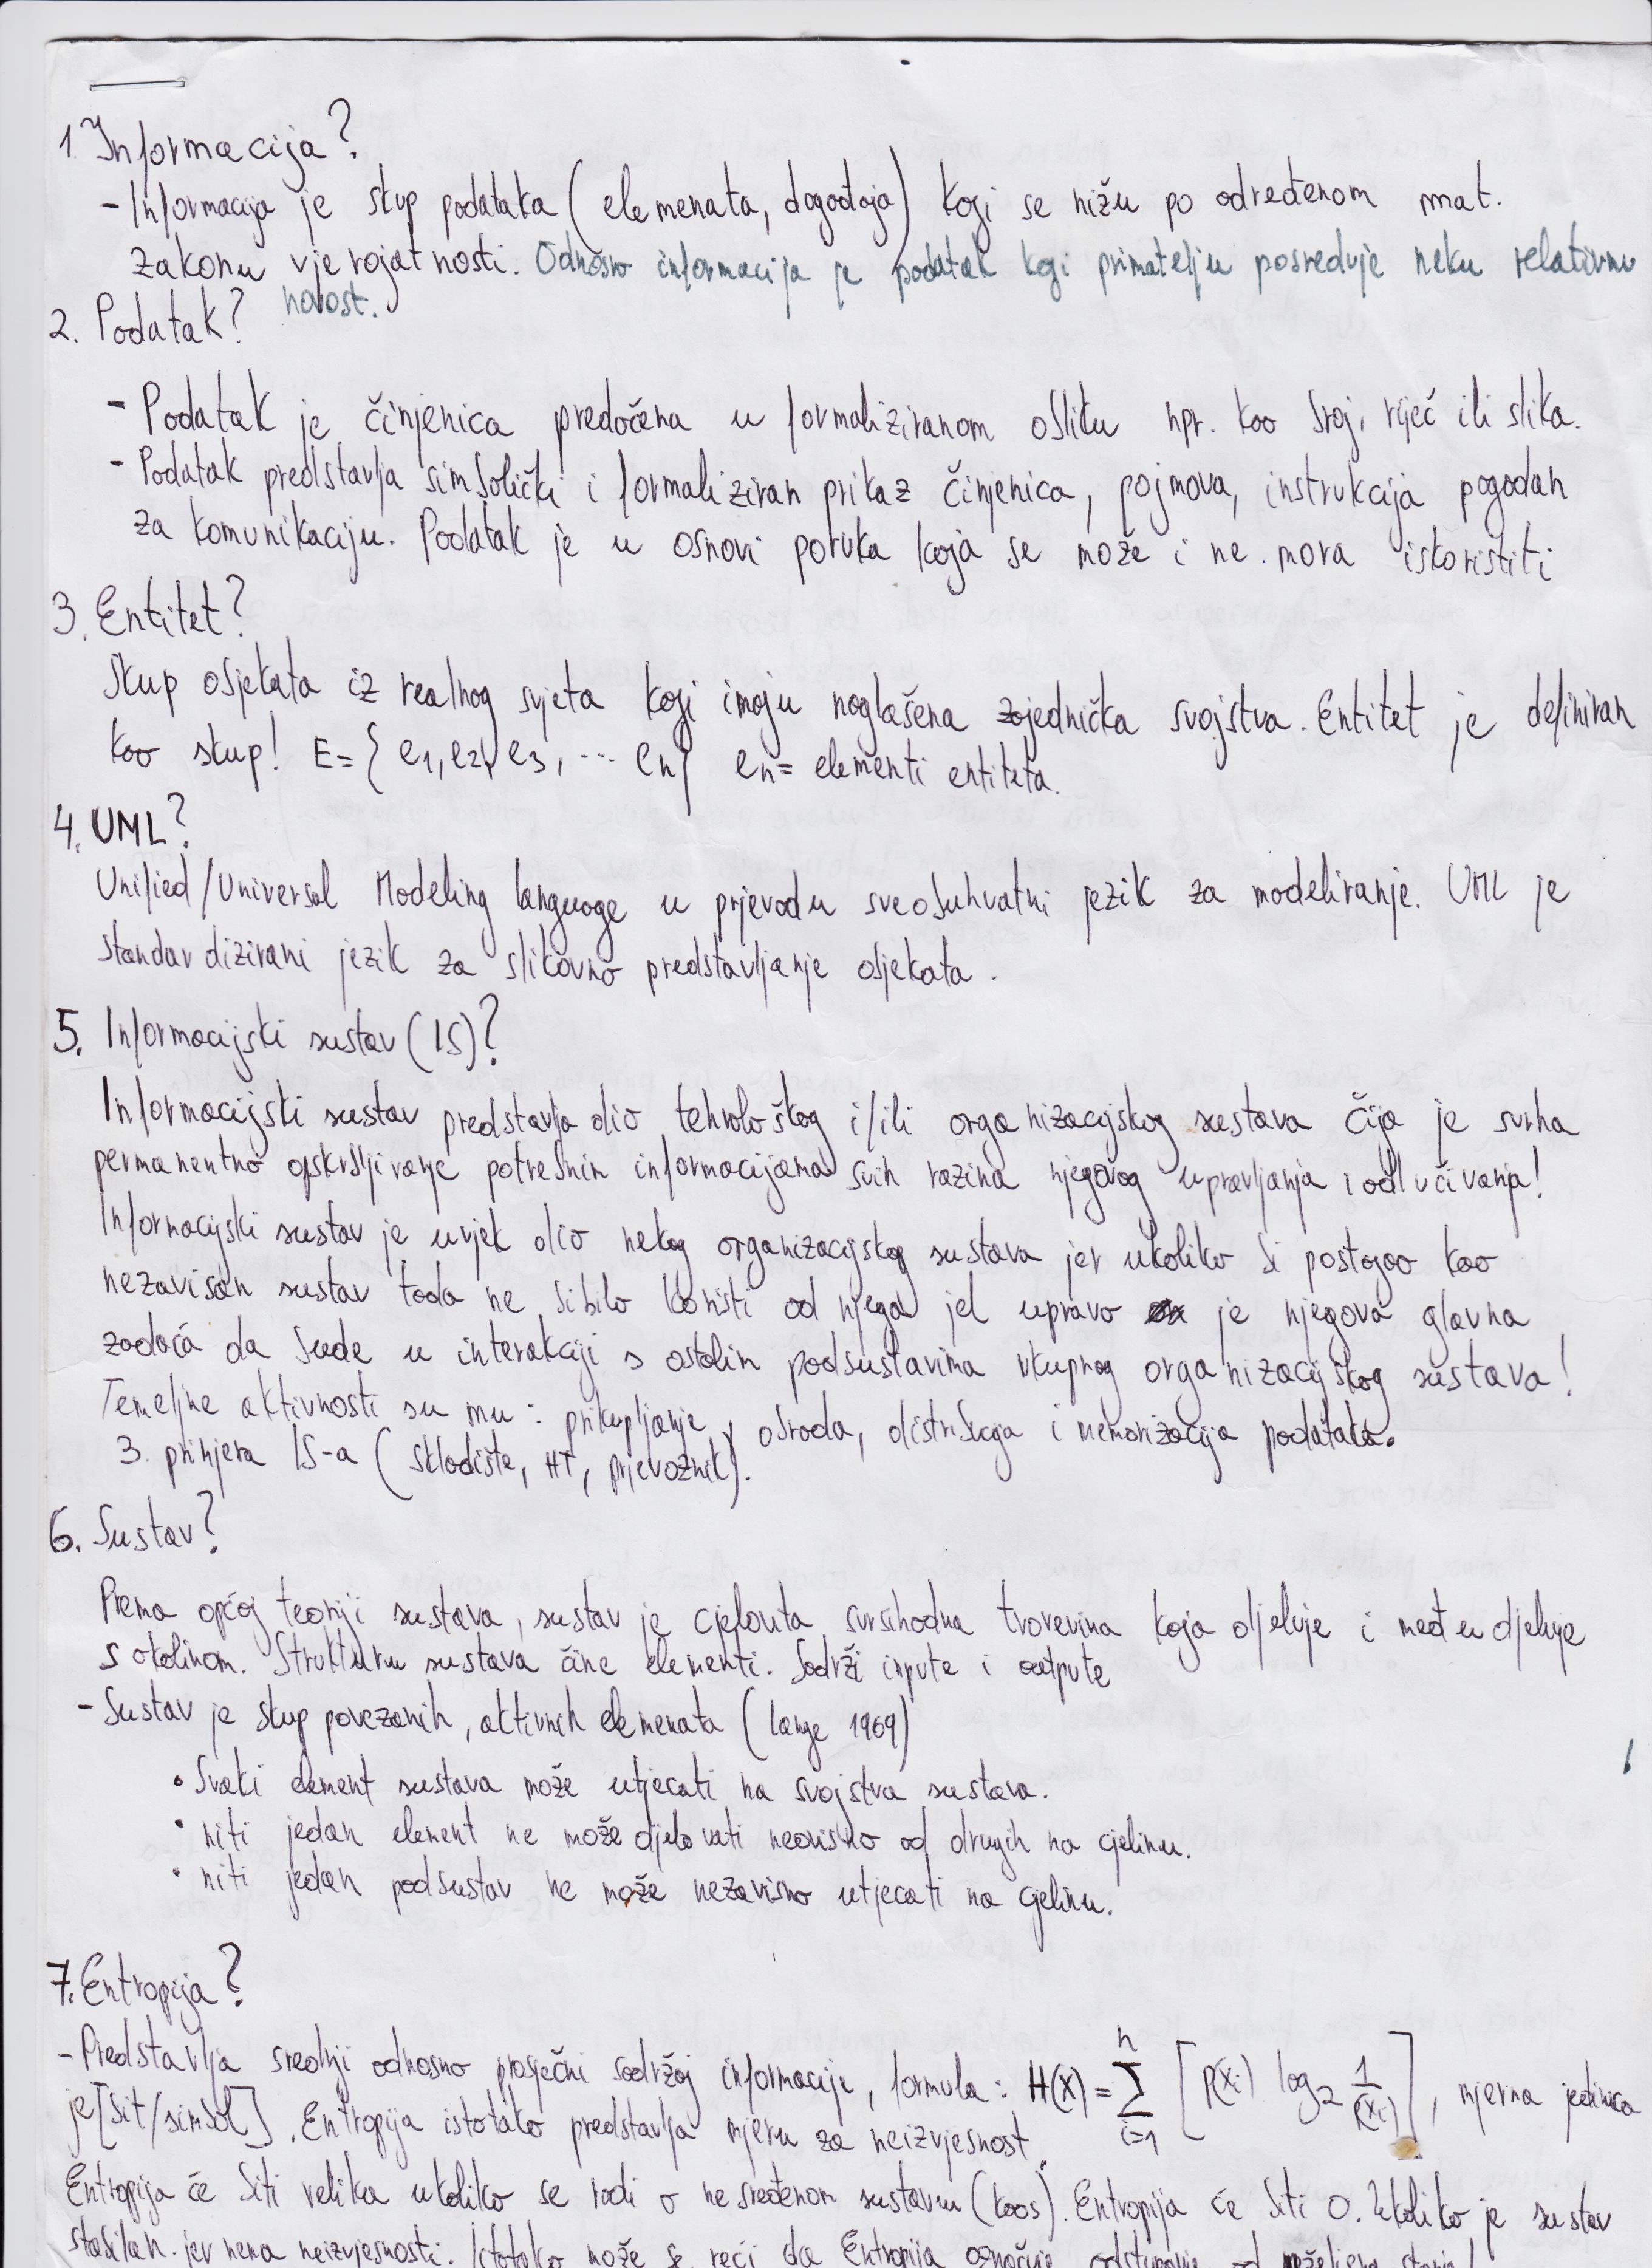 1. Informacija?
- Informacija je skup podataka (elemenata, događaja) koji se nižu po određenom mat.
zakonu vjerojatnosti. Odnosno informacija je podatak koji primatelju posreduje neku relativnu
novost.
2. Podatak?
- Podatak je činjenica predočena u formaliziranom obliku npr. kao broj, riječ ili slika.
- Podatak predstavlja simbolički i formaliziran prikaz činjenica, pojmova, instrukcija pogodan
za komunikaciju. Podatak je u osnovi poruka koja se može i ne mora iskoristiti
3. Entitet?
Skup objekata iz realnog svjeta koji imaju naglašena zajednička svojstva. Entitet je definiran
kao skup! E={e1, e2, e3, ... en} en= elementi entiteta.
4. UML?
Unified/Universal Modeling language u prijevodu sveobuhvatni jezik za modeliranje. UML je
standardizirani jezik za slikovno predstavljanje objekata.
5. Informacijski sustav (IS)?
Informacijski sustav predstavlja dio tehnološkog i/ili organizacijskog sustava čija je svrha
permanentno opskrbljivanje potrebnim informacijama svih razina njegovog upravljanja i odlučivanja!
Informacijski sustav je uvjek dio nekog organizacijskog sustava jer ukoliko bi postojao kao
nezavisan sustav tada ne bi bilo koristi od njega jel upravo je njegova glavna
zadaća da bude u interakciji s ostalim podsustavima ukupnog organizacijskog sustava!
Temeljne aktivnosti su mu: prikupljanje, obrada, distribucija i memorizacija podataka.
3. primjera IS-a (skladište, HT, prijevoznik).
6. Sustav?
Prema općoj teoriji sustava, sustav je cjelovita svrsihodna tvorevina koja djeluje i međudjeluje
s okolinom. Strukturu sustava čine elementi. Sadrži inpute i outpute
- Sustav je skup povezanih, aktivnih elemenata (Lange 1969)
• Svaki element sustava može utjecati na svojstva sustava.
• niti jedan element ne može djelovati neovisno od drugih na cjelinu.
• niti jedan podsustav ne može nezavisno utjecati na cjelinu.
7. Entropija?
- Predstavlja srednji odnosno prosječni sadržaj informacije, formula: H(X) = n Σ i=1 [P(xi) log2 1/P(xi)], mjerna jedinica
je [bit/simbol]. Entropija istotako predstavlja mjeru za neizvjesnost.
Entropija će biti velika ukoliko se radi o nesređenom sustavu (kaos). Entropija će biti 0. Ukoliko je sustav
stabilan jer nema neizvjesnosti. Istotako može se reći da Entropija označuje odstupanje od željenog stanja!